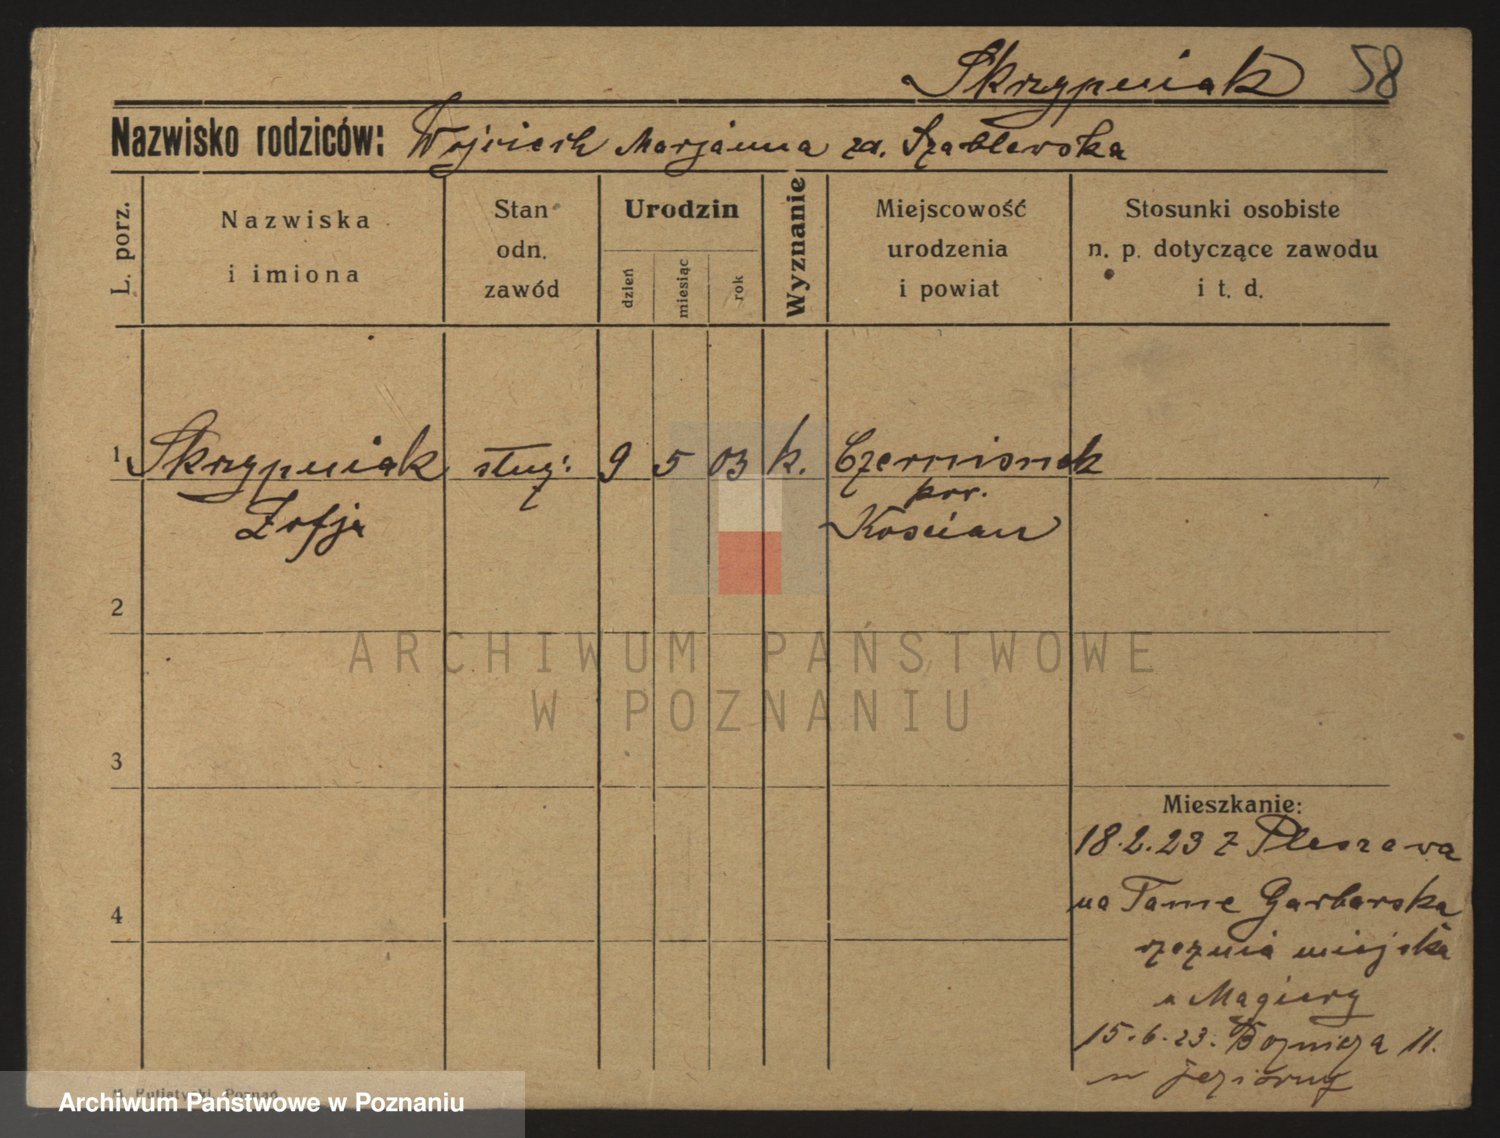 Skrzypniak 58
Nazwisko rodziców: Wojciech Marjanna zd. Szablewska
L. porz.
Nazwiska
i imiona
Stan
odn.
zawód
Urodzin
dzień
miesiąc
rok
Wyznanie
Miejscowość
urodzenia
i powiat
Stosunki osobiste
n. p. dotyczące zawodu
i t. d.
1 Skrzypniak służ. 9 5 03 k.
pow.
Zofja Kościan
2
ARCHIWUM PAŃSTWOWE
W POZNANIU
3
Mieszkanie:
18.2.23 z Pleszewa
na Tame Garbarska
rzeznia miejska
u Magiery
15.6.23. Boznicza 11.
Poznań
Archiwum Państwowe w Poznaniu